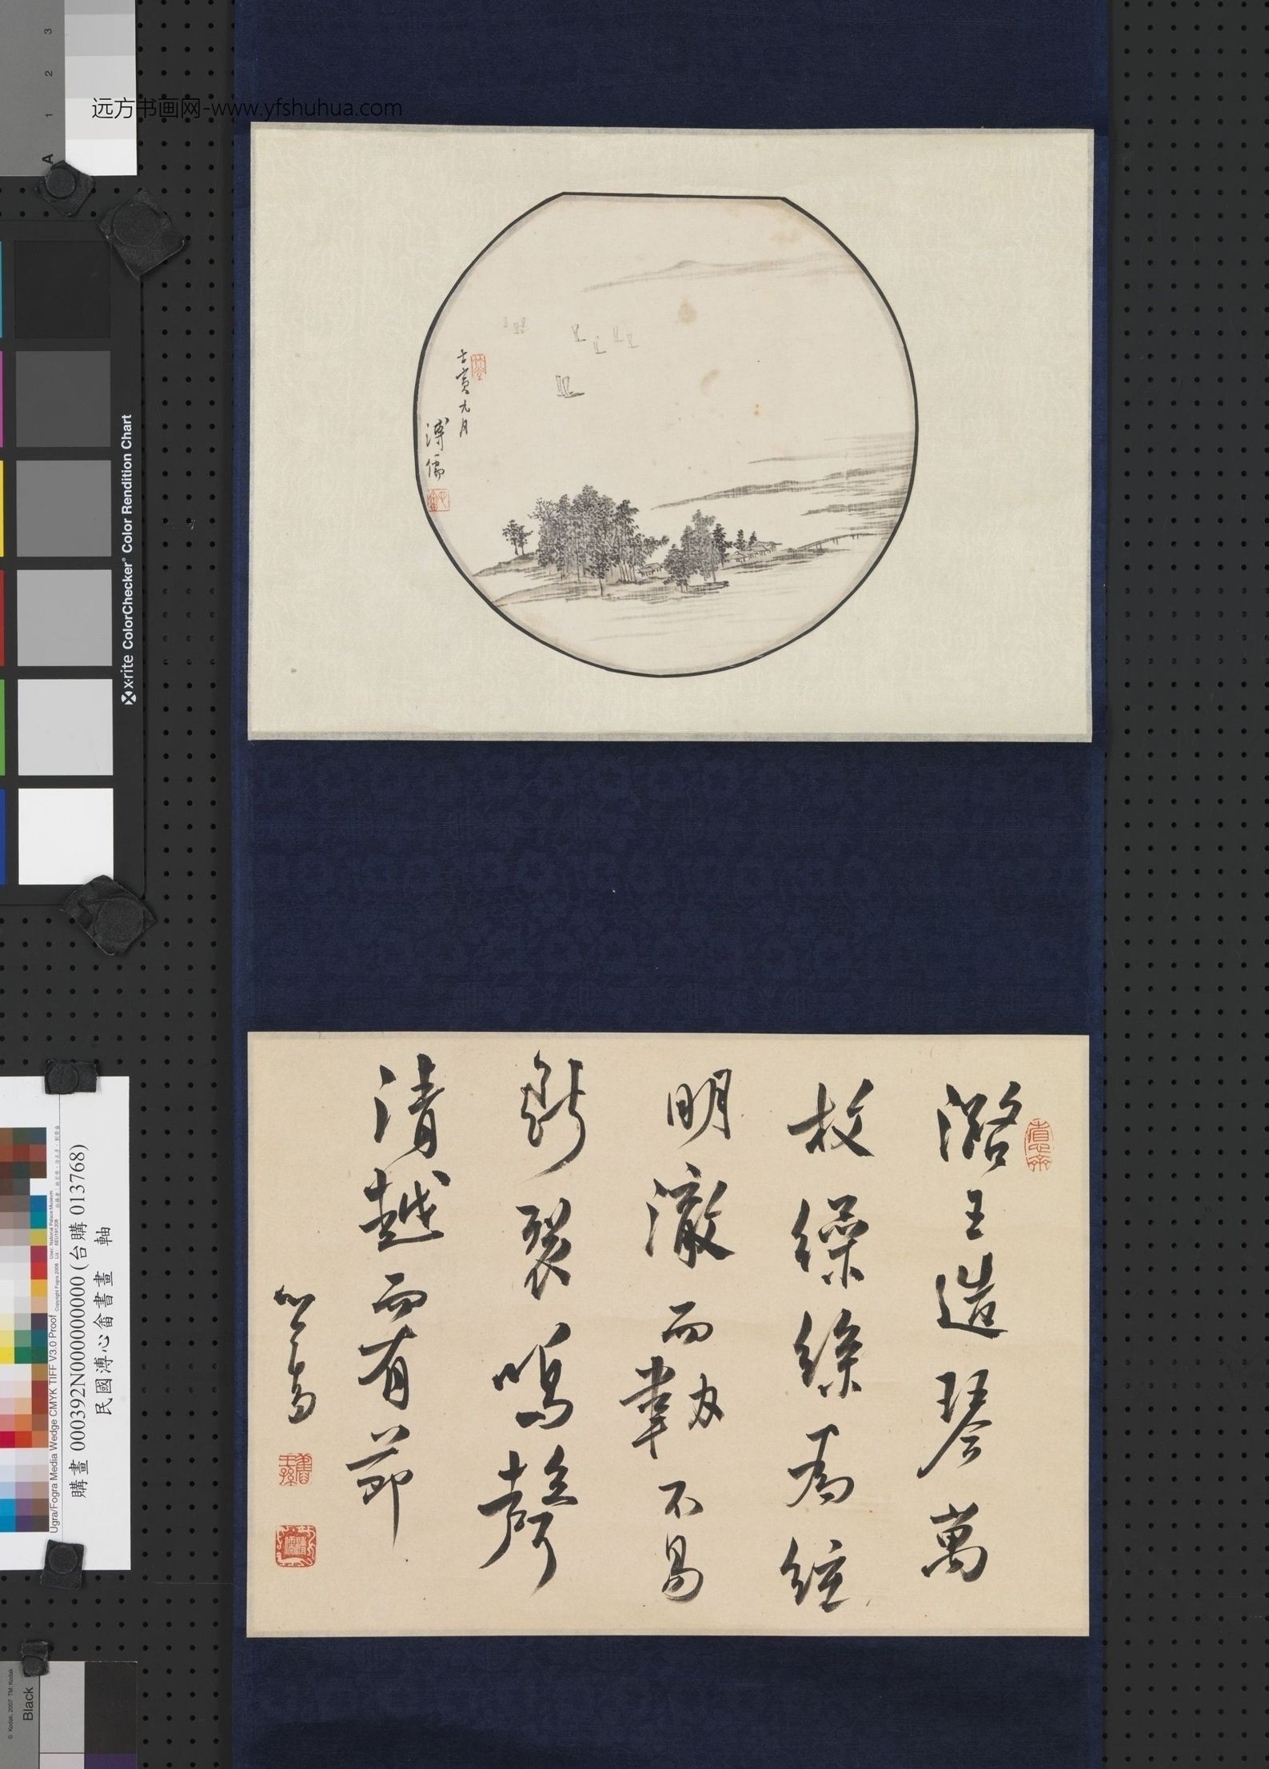 远方书画网-www.yfshuhua.com
3
2
1
A
x-rite ColorChecker® Color Rendition Chart
壬寅九月
溥儒
潞王造琴萬
枚繅絲為絃
明澈而韌不易
斷裂鳴聲
清越而有節
心畬
舊王孫
購畫 000392N000000000 (台購 013768)
民國溥心畬書畫 軸
Ugra/Fogra Media Wedge CMYK TIFF V3.0 Proof
© Kodak, 2007 TM: Kodak
Black